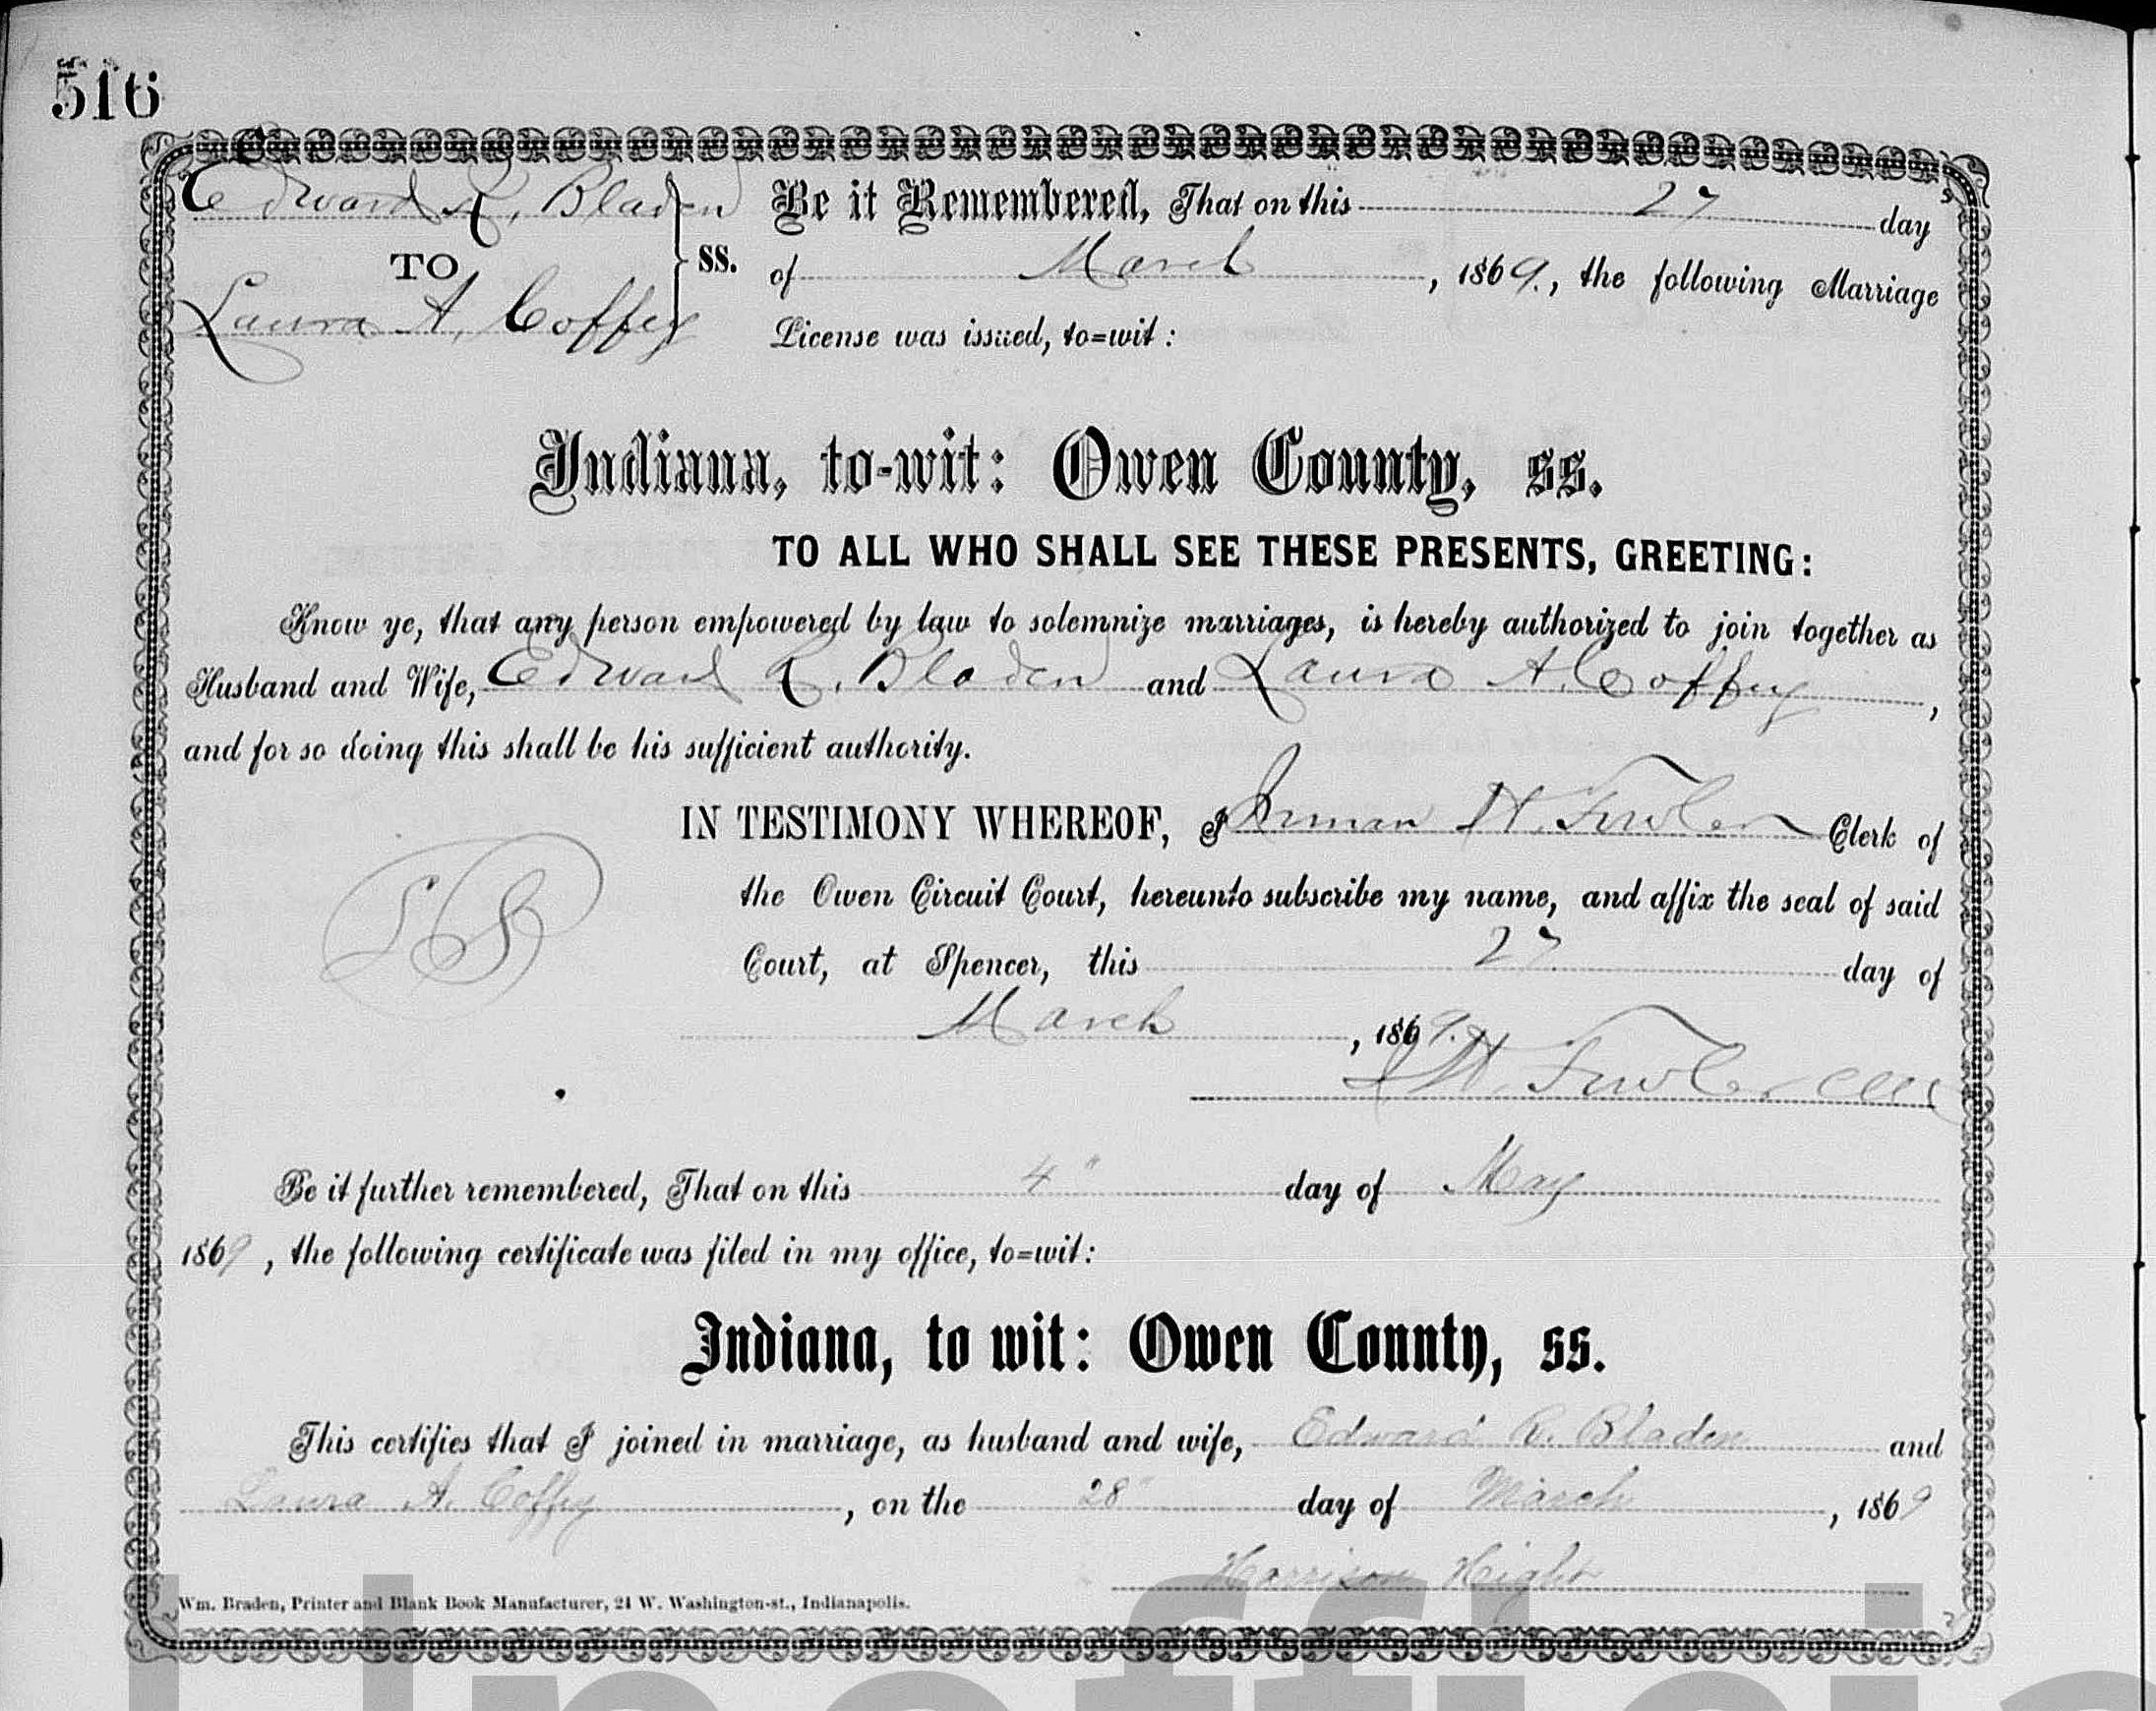 516
Edward R. Bladen
TO
Laura A. Coffey
ss.
Be it Remembered, That on this 27 day
of March, 1869., the following Marriage
License was issued, to=wit:
Indiana, to-wit: Owen County, ss.
TO ALL WHO SHALL SEE THESE PRESENTS, GREETING:
Know ye, that any person empowered by law to solemnize marriages, is hereby authorized to join together as
Husband and Wife, Edward R. Bladen and Laura A. Coffey,
and for so doing this shall be his sufficient authority.
IN TESTIMONY WHEREOF, I Inman H. Fowler Clerk of
the Owen Circuit Court, hereunto subscribe my name, and affix the seal of said
LS
Court, at Spencer, this 27 day of
March, 1869.
I H. Fowler Clk
Be it further remembered, That on this 4" day of May
1869, the following certificate was filed in my office, to=wit:
Indiana, to wit: Owen County, ss.
This certifies that I joined in marriage, as husband and wife, Edward R. Bladen and
Laura A. Coffey, on the 28" day of March, 1869
Harrison Hight
Wm. Braden, Printer and Blank Book Manufacturer, 21 W. Washington-st., Indianapolis.